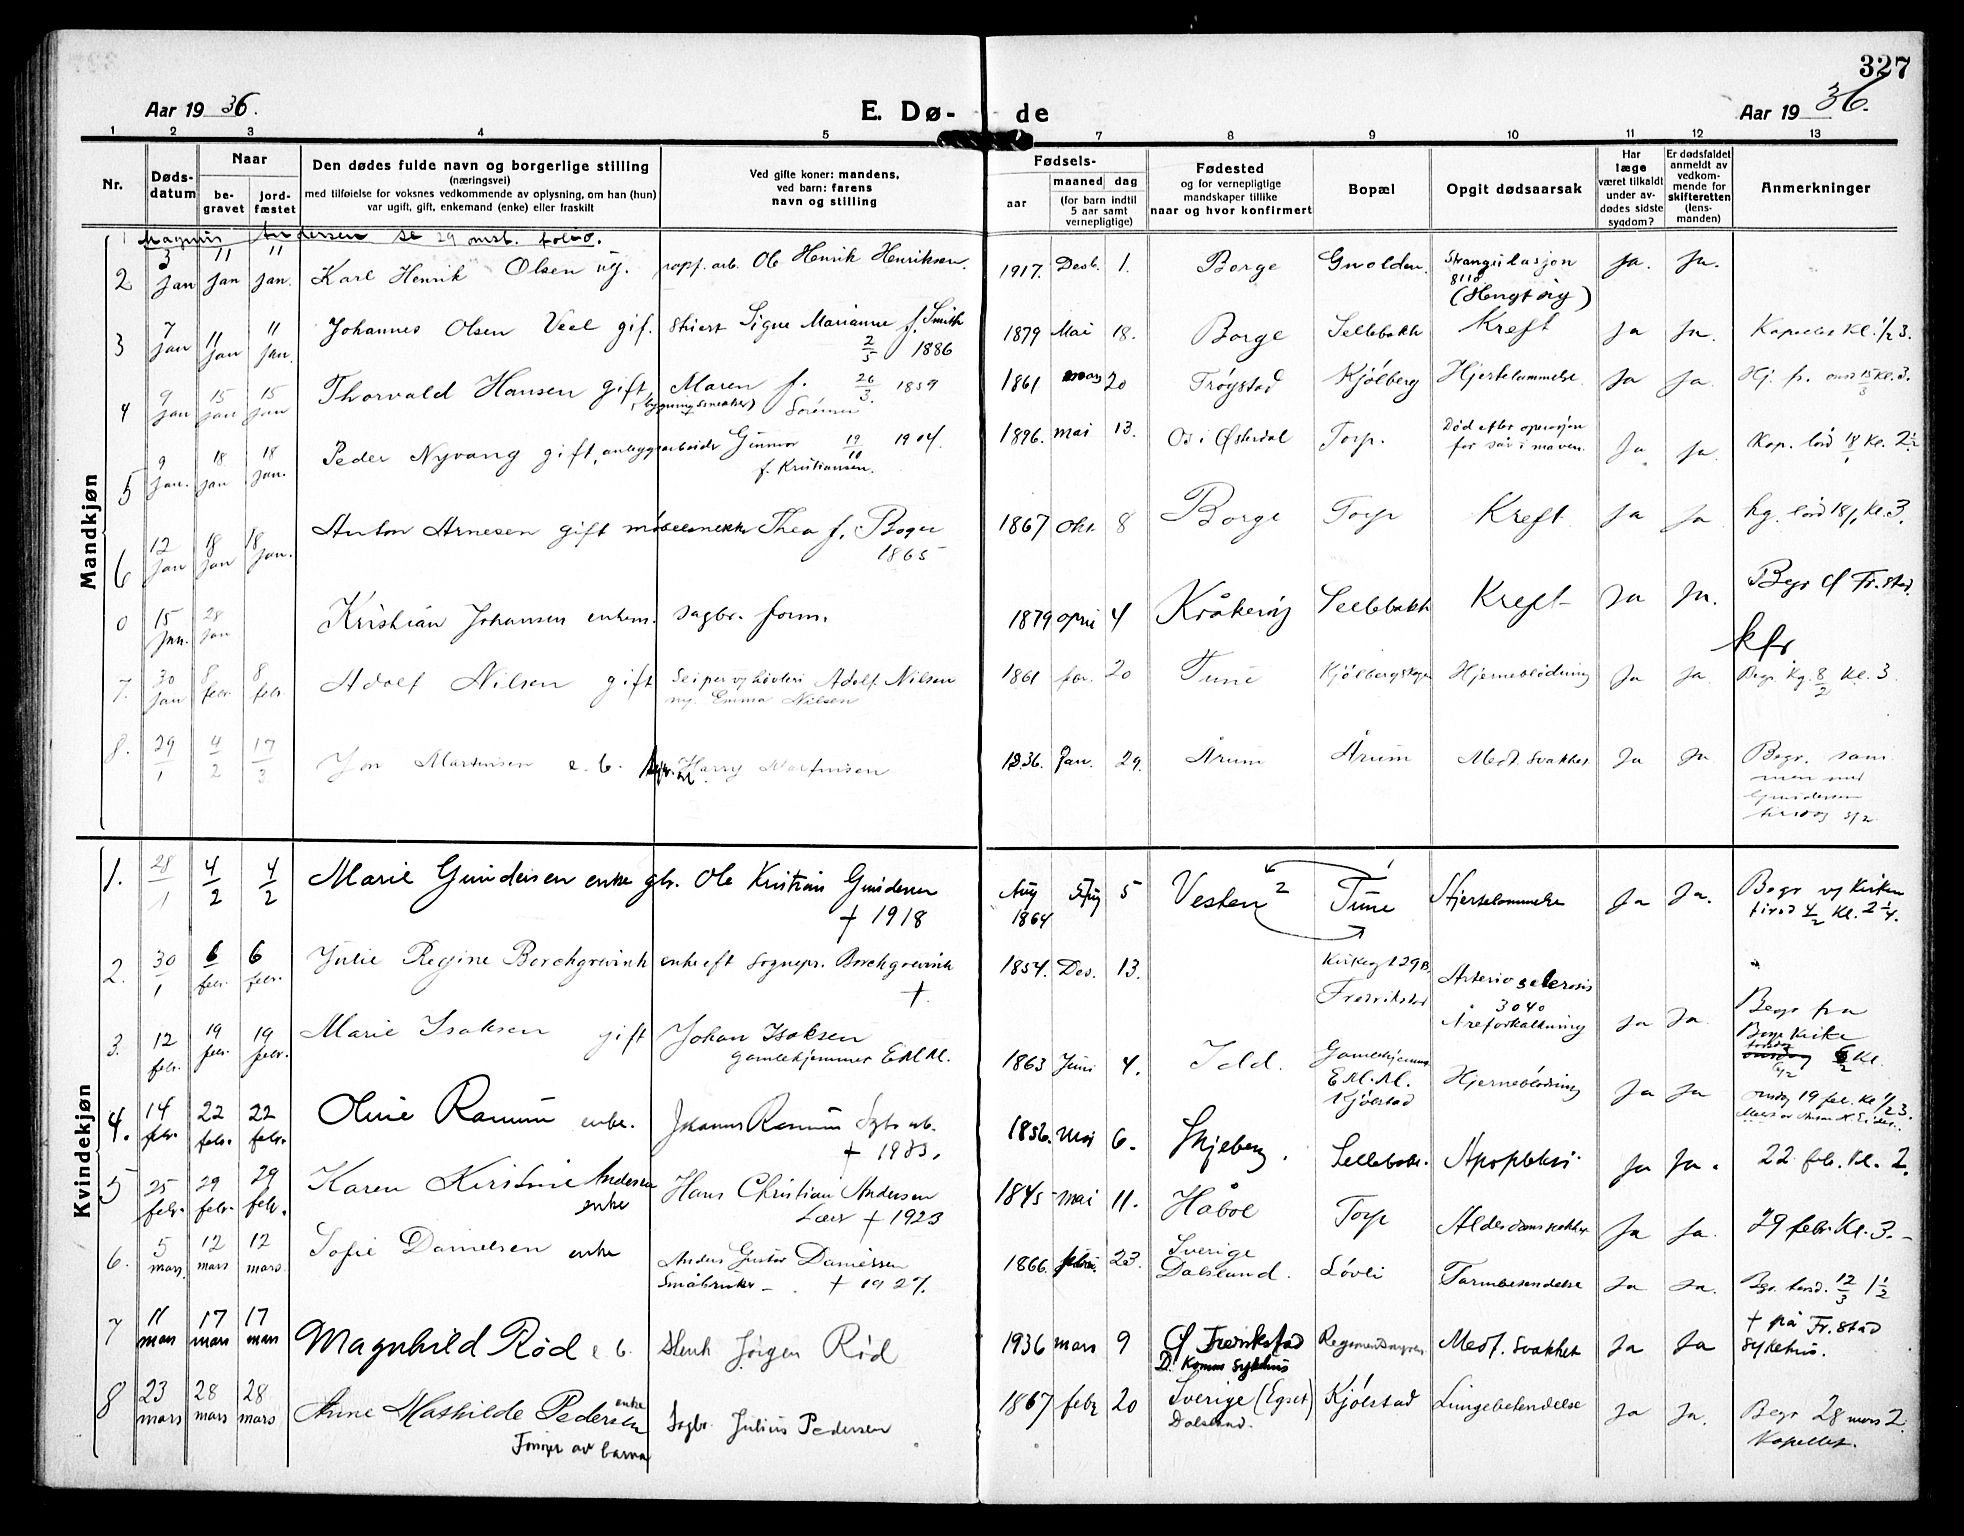 327
Aar 19 36.
E. Dø- de
Aar 19 36.
1 2 3 4 5 7 8 9 10 11 12 13
Nr.
Dødsdatum
Naar
begravet
jordfæstet
Den dødes fulde navn og borgerlige stilling
(næringsvei)
med tilføielse for voksnes vedkommende av oplysning, om han (hun)
var ugift, gift, enkemand (enke) eller fraskilt
Ved gifte koner: mandens,
ved barn: farens
navn og stilling
Fødsels-
aar
maaned
dag
(for barn indtil
5 aar samt
vernepligtige)
Fødested
og for vernepligtige
mandskaper tillike
naar og hvor konfirmert
Bopæl
Opgit dødsaarsak
Har
læge
været tilkaldt
under av-
dødes sidste
sygdom?
Er dødsfaldet
anmeldt av
vedkom-
mende for
skifteretten
(lens-
manden)
Anmerkninger
Mandkjøn
1 Magnus Andersen se 29 mst. folio.
2 3 jan 11 jan 11 jan. Karl Henrik Olsen ug. papf. arb. Ole Henrik Henriksen. 1917. Desb. 1. Borge Gnolden. Strangulasjon (Hengt sig) Ja. Ja.
3 7 jan 11 jan 11 jan. Johannes Olsen Veel gif. Signe Marianne f. Smith 2/5 1886 1879 Mai 18. Borge Sellebakk Kreft Ja Ja. Kapellet Kl. 1/2 3.
4 9 jan 15 jan 15 jan Thorvald Hansen gift, Maren f. 26/3 1859 1861 mars 20 Trøgstad Kjølberg Hjertelammelse. Ja Ja. Kl. 3.
5 9 jan. 18 jan 18 jan. Peder Nyvang gift, anleggsarbeider Gunvor 19/10 1904. f. Kristiansen. 1896. mai 13. Os i Østerdal Torp. Død efter operasjon for sår i maven. Ja Ja. Kap. lørd 18/1 Kl. 2 1/2
6 12 jan 18 jan 18 jan. Anton Arnesen gift møbelsnekker Thea f. 1865 1867 Okt 8 Borge Torp Kreft Ja Ja. Kg. lørd 18/1 Kl. 3.
0 15 jan. 28 jan Kristian Johansen enkem. sagbr. form. 1879 april 4 Kråkerøy Sellebakk Kreft Ja Ja. Begr. Fr.stad. kfr
7. 30 jan 8 febr 8 febr. Adolf Nilsen gift Adolf Nilsen Emma Nilsen 1861 20 Tune Hjerneblødning Ja Ja. Begr. Kg. 8/2 Kl. 3.
8. 29/1 4/2 17/3 Jon Martinsen e. b. Harry Martinsen 1936. Jan. 29. Årum Årum Medf. svakhet Ja Ja Begr. sammen med Gundersen tirsdag 4/2
Kvindekjøn
1. 28/1 4/2 4/2 Marie Gundersen enke gbr. Ole Kristian Gundersen † 1918 Aug 1864 5 Vesten 2 1 Tune Hjertelammelse Ja Ja. Begr v/ Kirken tirsd 4/2 Kl. 2 1/4.
2. 30/1 6 febr. 6 febr. Julie Regine Borchgrevink enke eft sognepr. Borchgrevink †. 1854. Des. 13. Kirkeg 129 B. Fredrikstad Arteriosclerosis 3040 Åreforkalkning Ja Ja. Begr fra Borge Kirke torsdag 6/2 Kl.
3. 12 febr. 19 febr. 19 febr. Marie Isaksen gift Johan Isaksen gamlehjemmet 1863 Juni 4. Idd. Gamlehjemmet Kjølstad Hjerneblødning Ja Ja onsdag 19 feb. Kl 1/2 3.
4. 14 febr. 22 febr. 22 febr. Oline Ramum enke. Johannes Ramum † 1933. 1856. Mai 6. Skjeberg. Sellebakk. Apopleksi Ja Ja. 22 feb. Kl. 2.
5 25 febr. 29 febr. 29 febr. Karen Kristine Andersen enke Hans Christian Andersen † 1923 1845 mai 11. Håbol Torp Alderdomssvakhet Ja Ja. 29 febr Kl. 3.-
6. 5 mars. 12 mars 12 mars. Sofie Danielsen enke Anders Gustav Danielsen Småbruker - † 1927. 1866. febr. 23. Sverige Dalsland. Løvli Tarmbesendelse Ja Ja. Begr. torsd. 12/3 1 1/2
7 11 mars 17 mars 17 mars Magnhild Rød e b. Henk Jørgen Rød 1936 mars 9 Fredrikstad Komm sykehus Medf. svakhet Ja Ja † på Fr.stad sykehus.
8 23 mars 28 mars 28 mars Anne Mathilde Pedersen enke Forsørget av barna Sagbr. Julius Pedersen 1867 febr 20 Sverige (Egset) Dalsland. Kjølstad Lungebetendelse Ja Ja. Begr 28 mars 2. Kapellet.